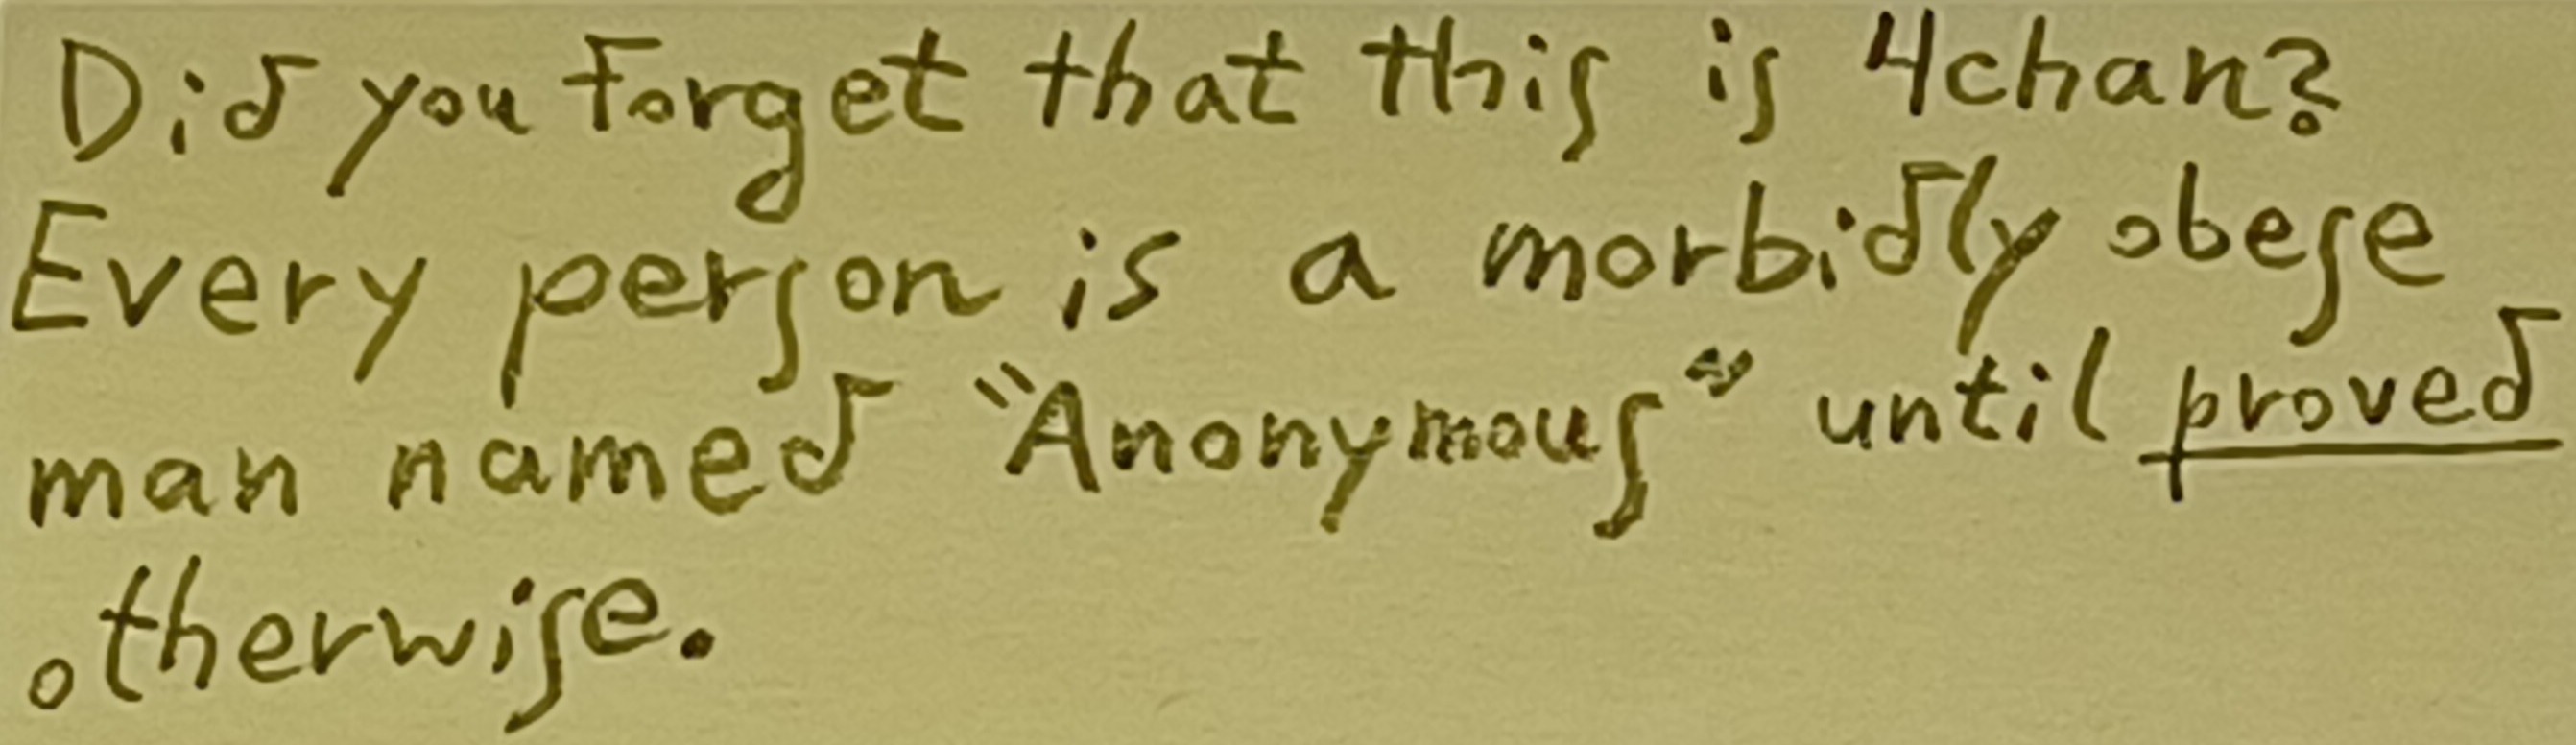 Did you Forget that this is 4chan?
Every person is a morbidly obese
man named "Anonymous" until proved
otherwise.